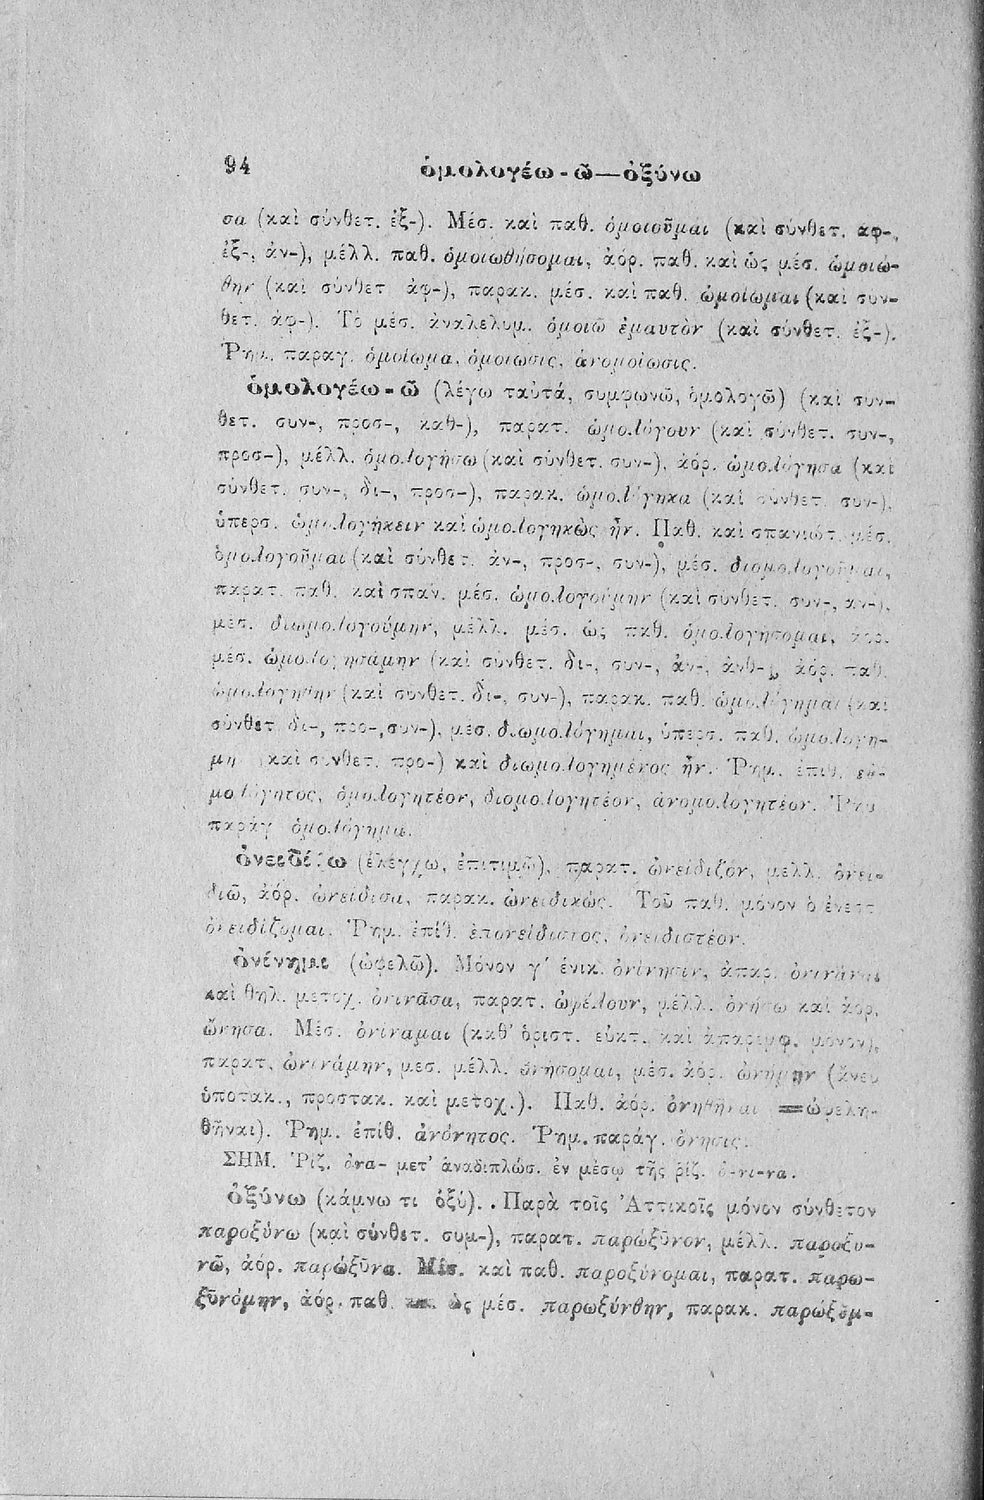 94 ὁμολογέω-ῶ—ὀξύνω
σα (καὶ σύνθετ. ἐξ-). Μέσ. καὶ παθ. ὁμοιοῦμαι (καὶ σύνθετ. ἀφ-,
ἐξ-, ἀν-), μέλλ. παθ. ὁμοιωθήσομαι, ἀόρ. παθ. καὶ ὡς μέσ. ὡμοιώ-
θην (καὶ σύνθετ ἀφ-), παρακ. μέσ. καὶ παθ. ὡμοίωμαι (καὶ συν-
θετ. ἀφ-). Τὸ μέσ. ἀναλελυμ. ὁμοιῶ ἐμαυτὸν (καὶ σύνθετ. ἐξ-).
Ῥημ. παραγ. ὁμοίωμα, ὁμοίωσις, ἀνομοίωσις.
ὁμολογέω-ῶ (λέγω ταὐτά, συμφωνῶ, ὁμολογῶ) (καὶ συν-
θετ. συν-, προσ-, καθ-), παρατ. ὡμολόγουν (καὶ σύνθετ. συν-,
προσ-), μέλλ. ὁμολογήσω (καὶ σύνθετ. συν-), ἀόρ. ὡμολόγησα (καὶ
σύνθετ. συν-, δι-, προσ-), παρακ. ὡμολόγηκα (καὶ σύνθετ. συν-),
ὑπερσ. ὡμολογήκειν καὶ ὡμολογηκὼς ἦν. Παθ. καὶ σπανιώτ. μέσ.
ὁμολογοῦμαι (καὶ σύνθετ. ἀν-, προσ-, συν-), μέσ. διομολογοῦμαι,
παρατ. παθ. καὶ σπαν. μέσ. ὡμολογούμην (καὶ σύνθετ. συν-, ἀν-),
μέσ. διωμολογούμην, μέλλ. μέσ. ὡς παθ. ὁμολογήσομαι, ἀόρ.
μέσ. ὡμολογησάμην (καὶ σύνθετ. δι-, συν-, ἀν-, ἀνθ-), ἀόρ. παθ.
ὡμολογήθην (καὶ σύνθετ. δι-, συν-), παρακ. παθ. ὡμολόγημαι (καὶ
σύνθετ δι-, προ-, συν-), μέσ. διωμολόγημαι, ὑπερσ. παθ. ὡμολογή-
μην (καὶ σύνθετ. προ-) καὶ διωμολογημένος ἦν. Ῥημ. ἐπιθ. εὐο-
μολόγητος, ὁμολογητέον, διομολογητέον, ἀνομολογητέον. Ῥημ
παράγ ὁμολόγημα.
ὀνειδίζω (ἐλέγχω, ἐπιτιμῶ), παρατ. ὠνείδιζον, μέλλ. ὀνει-
διῶ, ἀόρ. ὠνείδισα, παρακ. ὠνειδικώς. Τοῦ παθ. μόνον ὁ ἐνεστ
ὀνειδίζομαι. Ῥημ. ἐπίθ. ἐπονείδιστος, ὀνειδιστέον.
ὀνίνημι (ὠφελῶ). Μόνον γ´ ἑνικ. ὀνίνησιν, ἀπαρ. ὀνινάναι
καὶ θηλ. μετοχ. ὀνινᾶσα, παρατ. ὠφέλουν, μέλλ. ὀνήσω καὶ ἀόρ.
ὤνησα. Μέσ. ὀνίναμαι (καθ' ὁριστ. εὐκτ. καὶ ἀπαρεμφ. μόνον),
παρατ. ὠνινάμην, μεσ. μέλλ. ὀνήσομαι, μέσ. ἀόρ. ὠνήμην (ἄνευ
ὑποτακ., προστακ. καὶ μετοχ.). Παθ. ἀόρ. ὀνηθῆναι =ὠφελη-
θῆναι). Ῥημ. ἐπίθ. ἀνόνητος. Ῥημ. παράγ. ὄνησις.
ΣΗΜ. Ῥίζ. ὀνα- μετ' ἀναδιπλώσ. ἐν μέσῳ τῆς ῥίζ. ὀ-νι-να.
ὀξύνω (κάμνω τι ὀξύ). . Παρὰ τοῖς Ἀττικοῖς μόνον σύνθετον
παροξύνω (καὶ σύνθετ. συμ-), παρατ. παρώξυνον, μέλλ. παροξυ-
νῶ, ἀόρ. παρώξυνα. Μέσ. καὶ παθ. παροξύνομαι, παρατ. παρω-
ξυνόμην, ἀόρ. παθ καὶ ὡς μέσ. παρωξύνθην, παρακ. παρώξυμ-